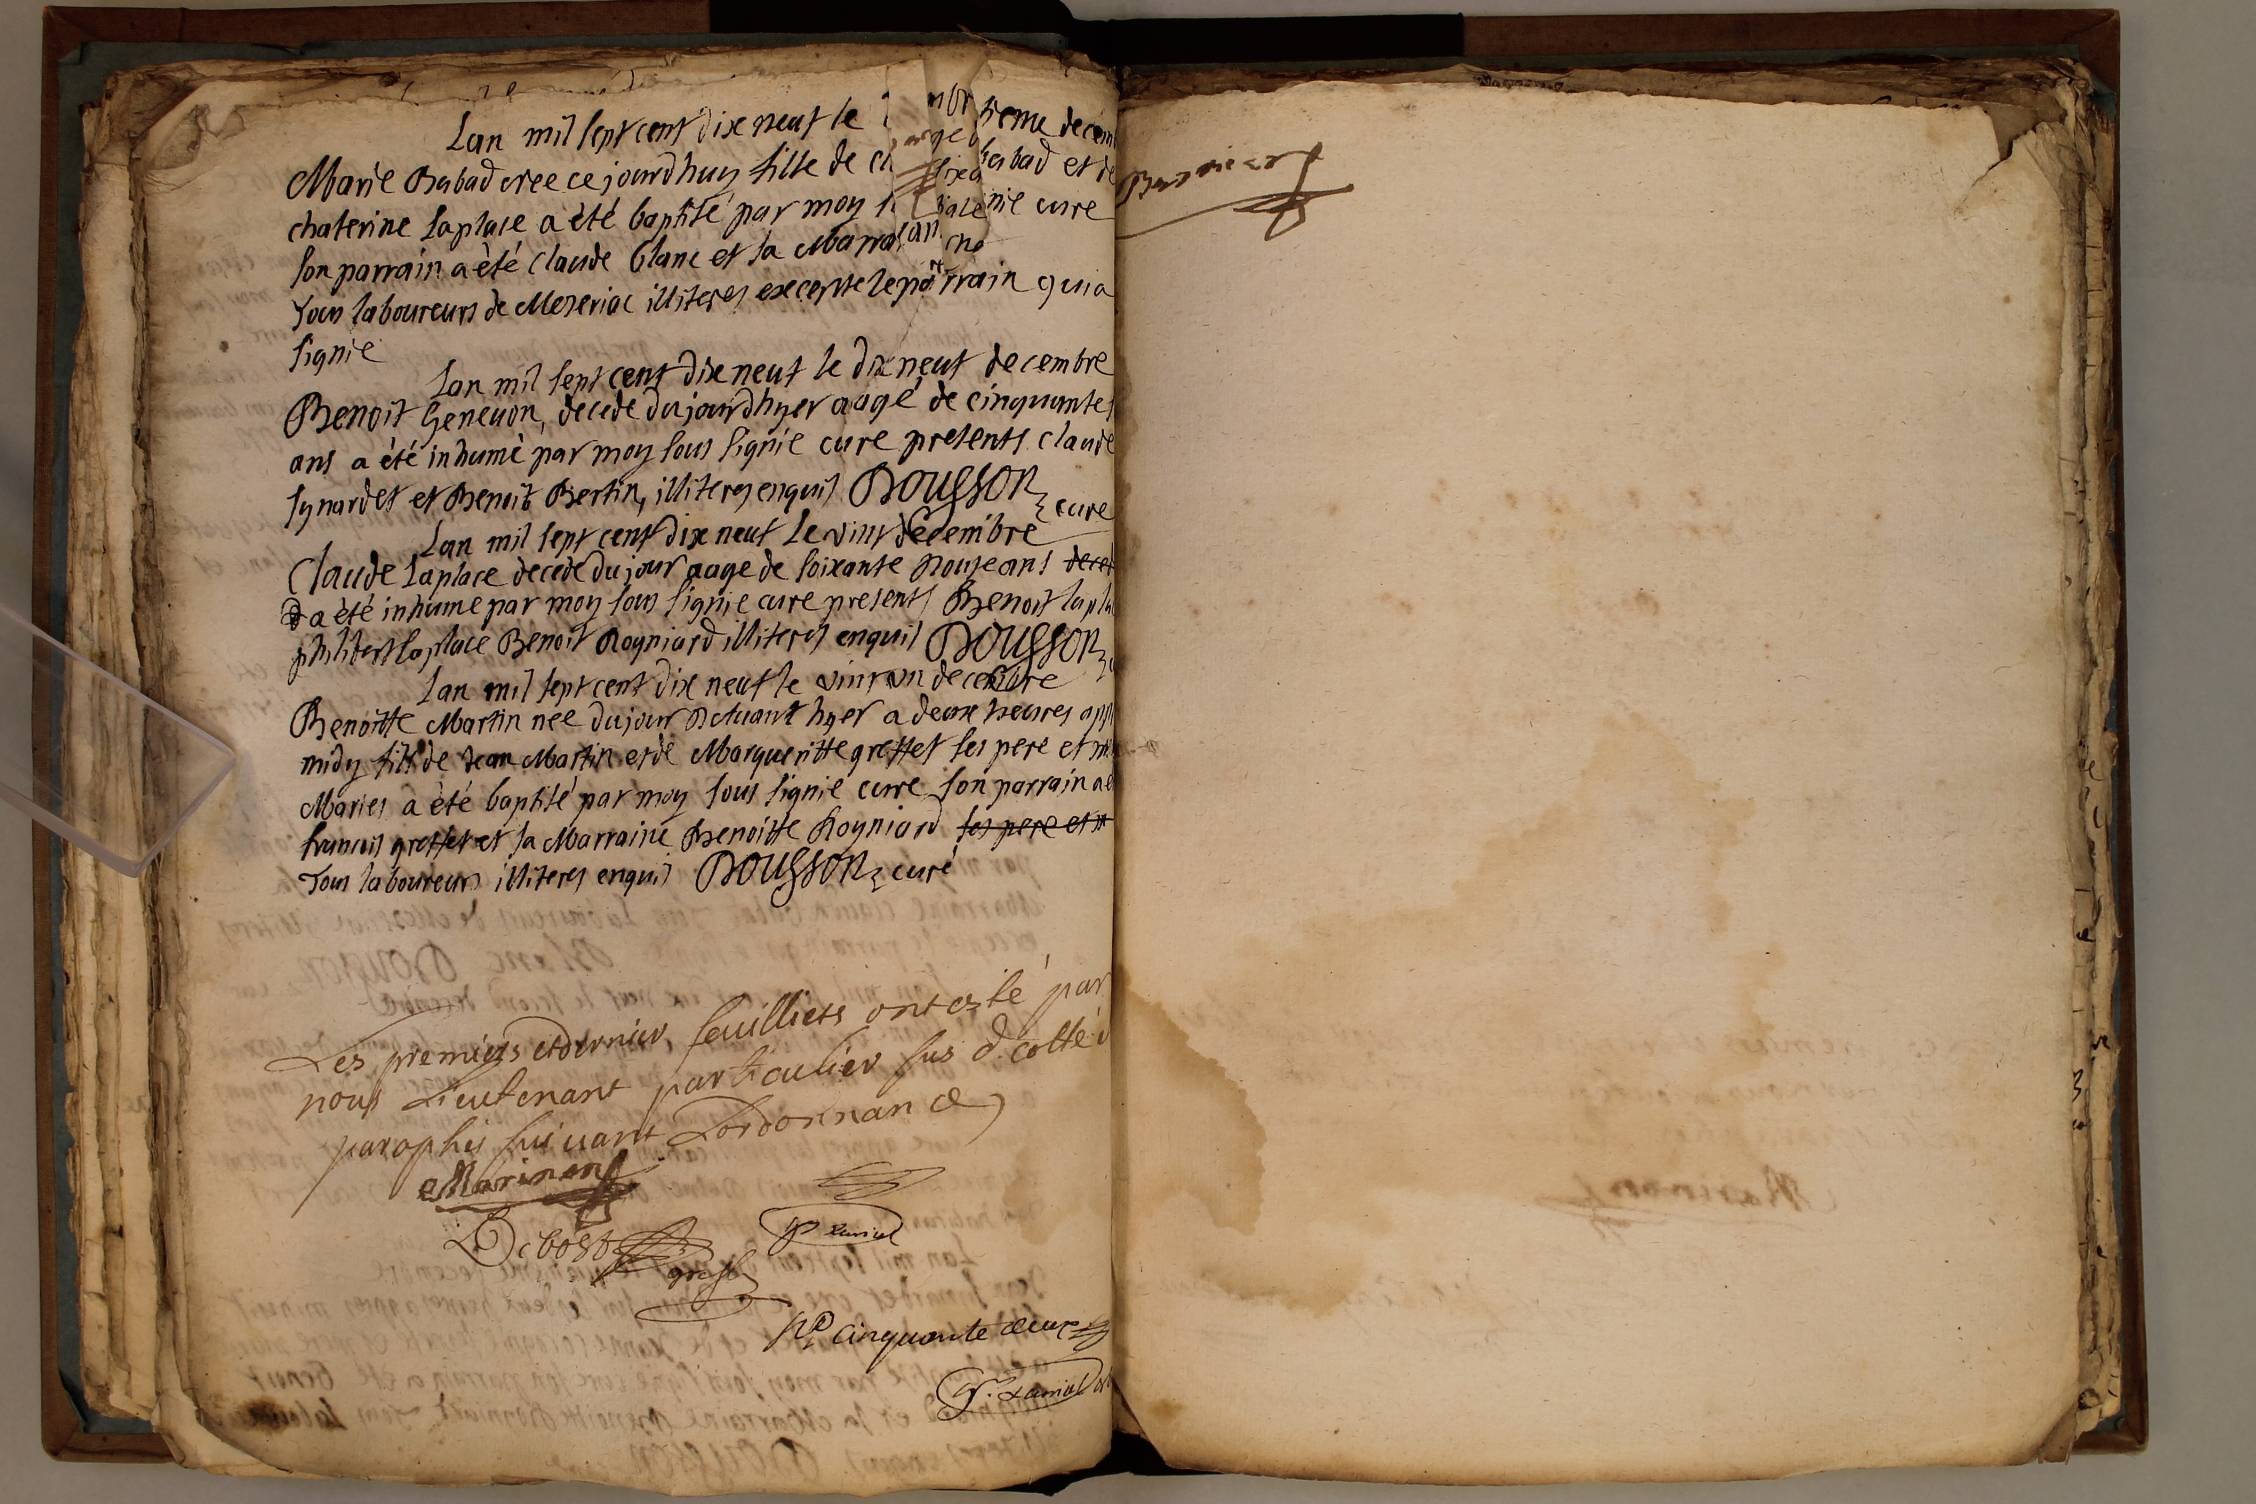 Lan mil sept cent dixe neuf le
Marie Babad cree ce jourdhuy fille de cl babad et de
chaterine Laplace a èté baptisé par moy cure
son parrain a èté Claude blanc et sa Marra
Tous laboureurs de Meseriac illiteres excepte le parrain qui a
signie
Lan mil sept cent dixe neuf le dixe neuf decembre
Benoit Geneuon, decede du jourdhyer aagé de cinquantes
ans a été inhumè par moy sous signie cure presents claude
synardet et Benoit Bertin, illiteres enquis Bousson cure
Lan mil sept cent dixe neuf Le vint decembre
Claude Laplace decede du jour aage de soixante Douze ans
a èté inhume par moy sous signie cure presents Benoit lapla
philibert Laplace Benoit Royniard illiteres enquis Bousson
Lan mil sept cent dix neuf le vint vn decembre
Benoitte Martin née du jour Deuant hyer a deuxe heures app
midy fill de Jean Martin et de Marqueritte greffet ses pere et
Maries a èté baptisé par moy sous signie cure son parrain a e
francois greffet et sa Marraine Benoitte Royniard ses pere et m
Tous laboureurs illiteres enquis Bousson curé
Les premiers et dernier feuilliets ont esté par
nous Lieutenant particulier sus d. cottés
paraphés suiuant Lordonnance
Marinon
Debost
greff
No cinquante deux